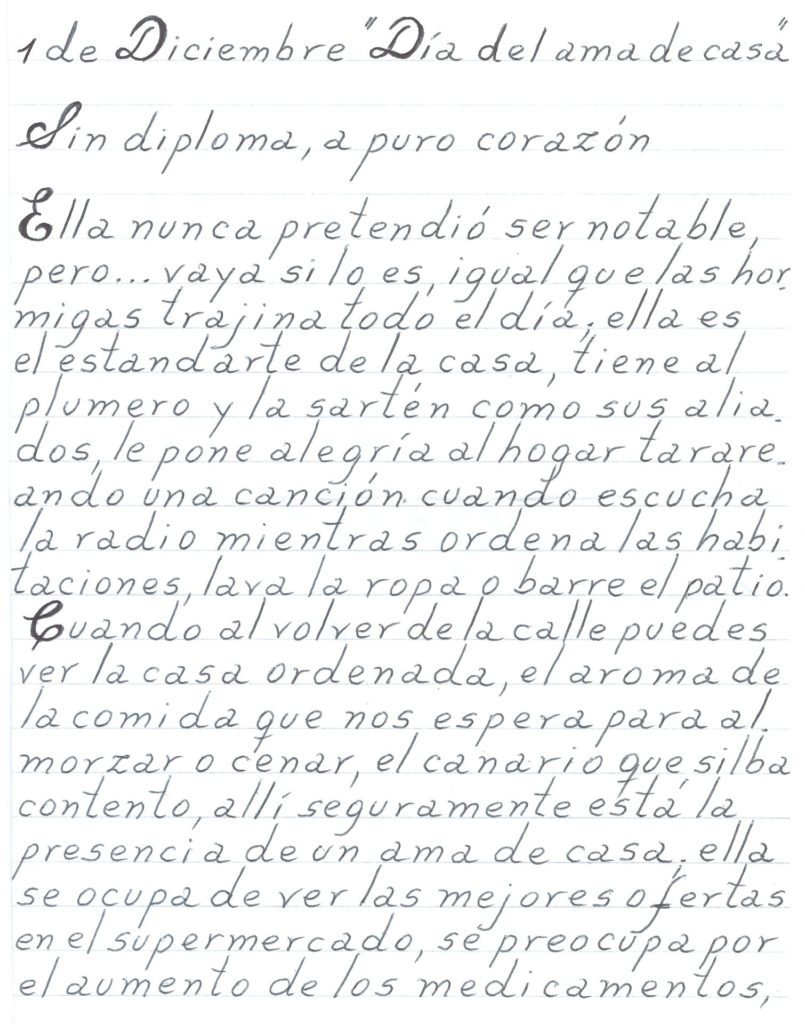 1 de Diciembre "Día del ama de casa"
Sin diploma, a puro corazón
Ella nunca pretendió ser notable,
pero... vaya si lo es, igual que las hor-
migas trajina todo el día; ella es
el estandarte de la casa, tiene al
plumero y la sartén como sus alia-
dos, le pone alegría al hogar tarare-
ando una canción cuando escucha
la radio mientras ordena las habi-
taciones, lava la ropa o barre el patio.
Cuando al volver de la calle puedes
ver la casa ordenada, el aroma de
la comida que nos espera para al-
morzar o cenar, el canario que silba
contento, allí seguramente está la
presencia de un ama de casa; ella
se ocupa de ver las mejores ofertas
en el supermercado, se preocupa por
el aumento de los medicamentos,